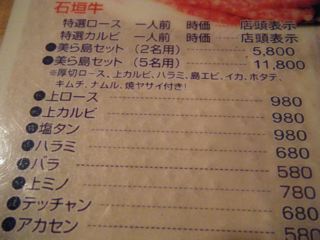 石垣牛
特選ロース 一人前 時価 店頭表示
特選カルビ 一人前 時価 店頭表示
●美ら島セット (2名用) 5,800
●美ら島セット (5名用) 11,800
※厚切ロース、上カルビ、ハラミ、島エビ、イカ、ホタテ、
キムチ、ナムル、焼ヤサイ付き!
上ロース 980
上カルビ 980
塩タン 980
ハラミ 680
バラ 580
上ミノ 780
テッチャン 680
アカセン 580